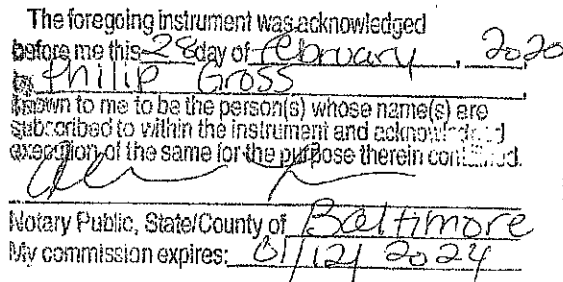 The foregoing instrument was acknowledged
before me this 28 day of February, 2020
by Philip Gross,
known to me to be the person(s) whose name(s) are
subscribed to within the instrument and acknowledged
execution of the same for the purpose therein contained.
Notary Public, State/County of Baltimore
My commission expires: 01/12/2024